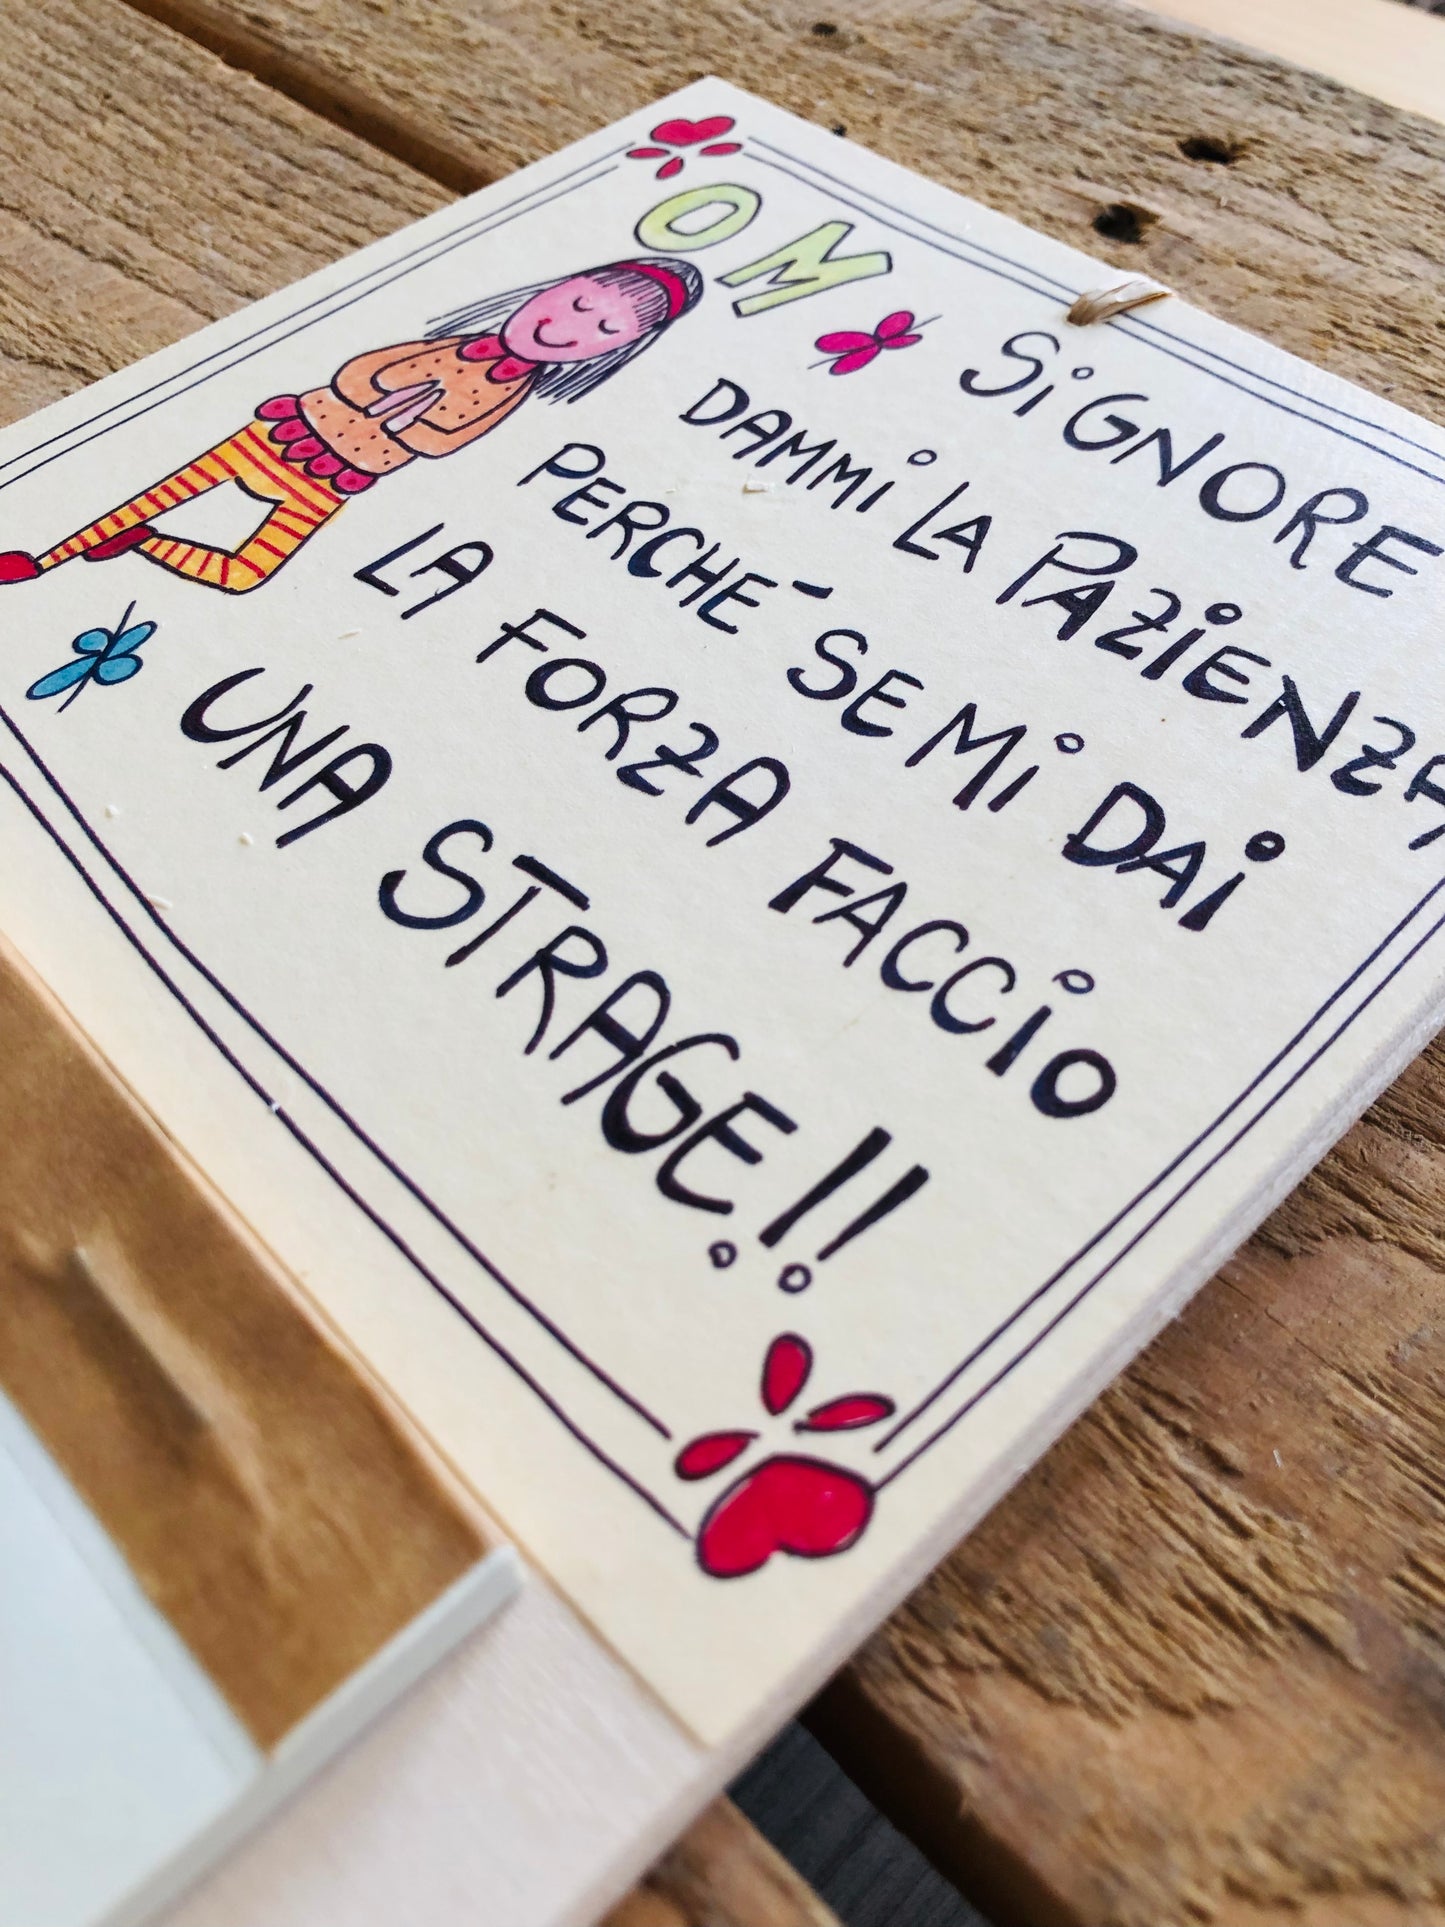 OM
SiGNORE
DAMMi LA PAZiENZA
PERCHÉ SE Mi DAi
LA FORZA FACCiO
UNA STRAGE!!